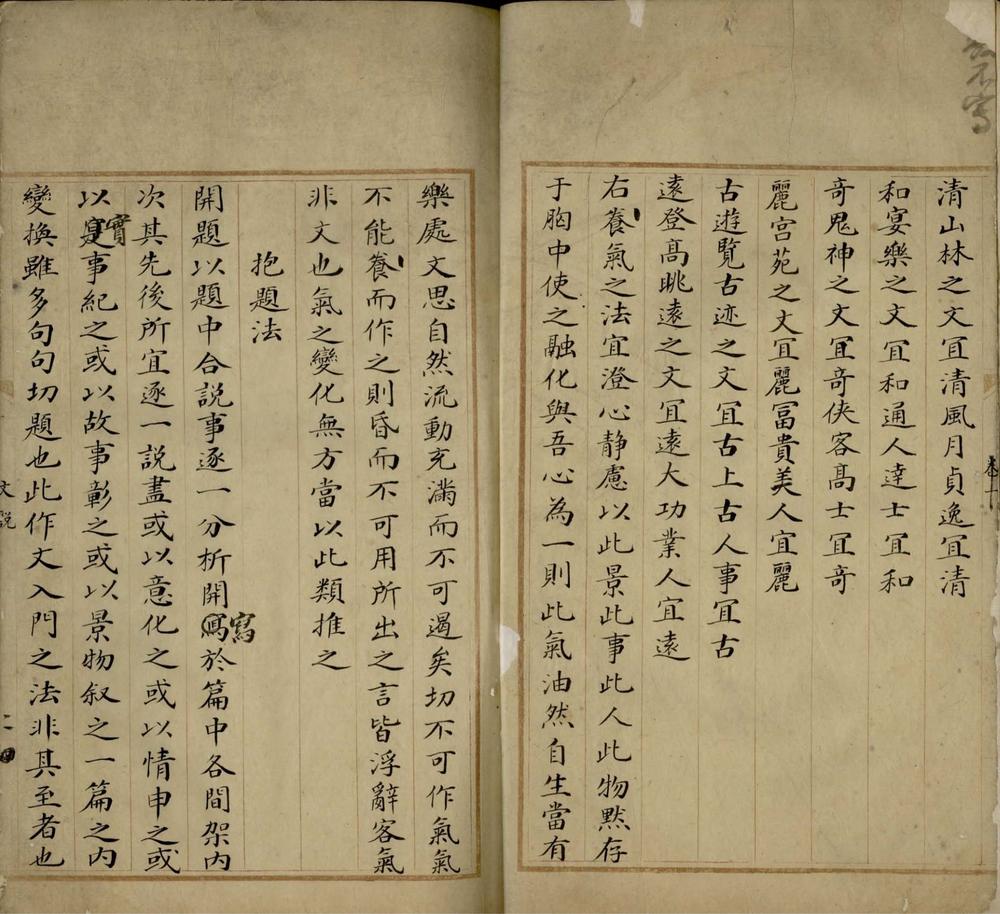 清山林之文冝清風月貞逸冝清
和宴樂之文冝和通人達士冝和
奇鬼神之文冝奇俠客髙士冝奇
麗宫苑之文冝麗冨貴美人宜麗
古遊覧古迹之文冝古上古人事冝古
遠登髙眺遠之文冝遠大功業人宜遠
右養氣之法宜澄心静慮以此景此事此人此物黙存
于胸中使之融化與吾心為一則此氣油然自生當有
樂處文思自然流動充滿而不可遏矣切不可作氣氣
不能養而作之則昏而不可用所出之言皆浮辭客氣
非文也氣之變化無方當以此類推之
抱題法
開題以題中合説事逐一分析開寫於篇中各間架内
次其先後所宜逐一説盡或以意化之或以情申之或
以實事紀之或以故事彰之或以景物叙之一篇之内
變換雖多句句切題也此作文入門之法非其至者也
卷十
文説
二